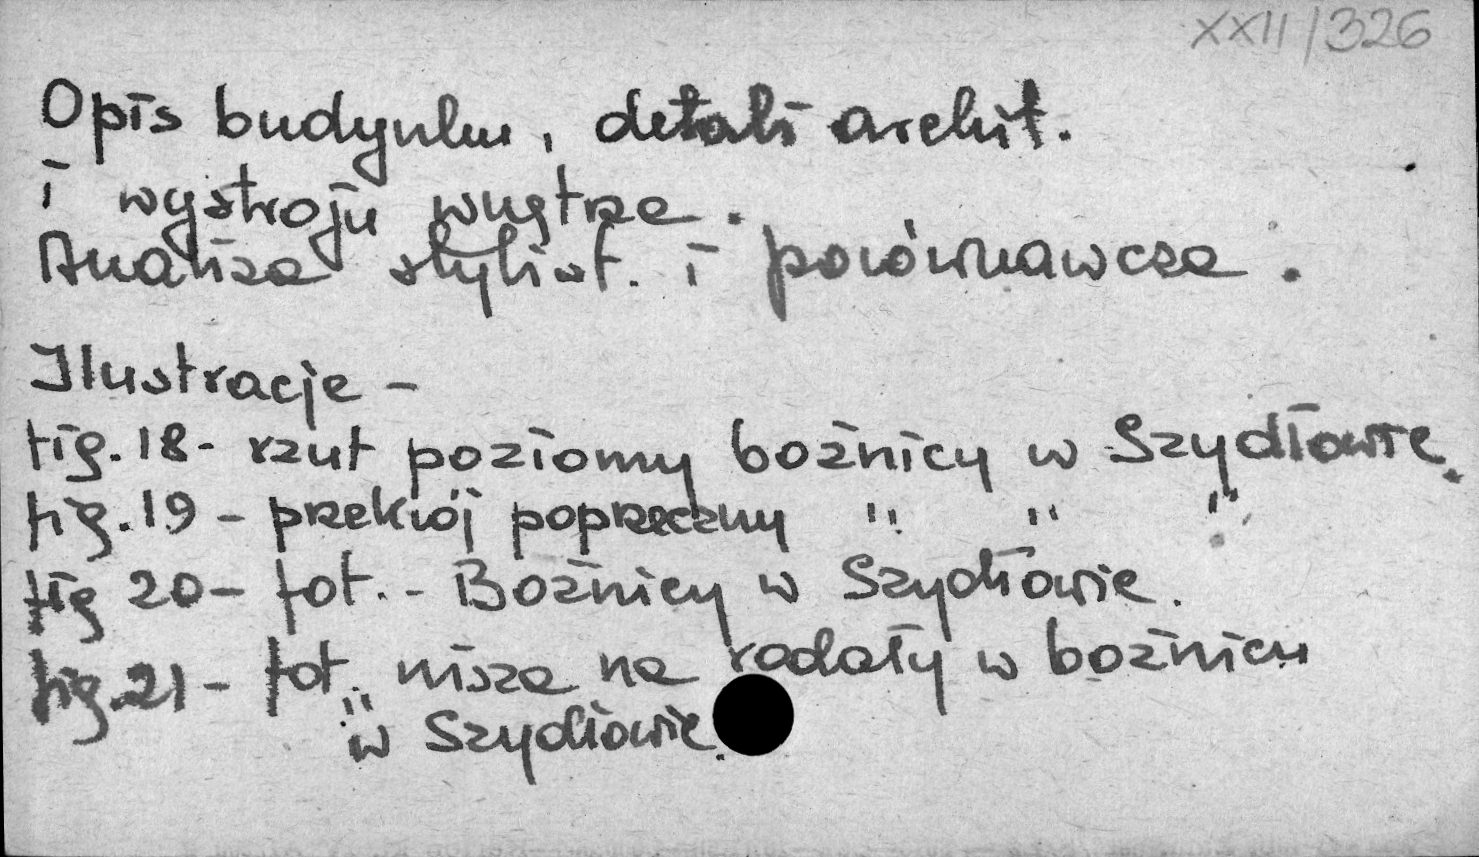 XXII/326
Opis budynku, detali archit.
i wystroju wnętrza.
Analiza stylist. i porównawcza.
Ilustracje -
fig. 18 - rzut poziomy bożnicy w Szydłowie.
fig. 19 - przekrój poprzeczny " " "
fig 20 - fot. - Bożnicy w Szydłowie.
fig. 21 - fot. " nisza na rodały w bożnicy
w Szydłowie.